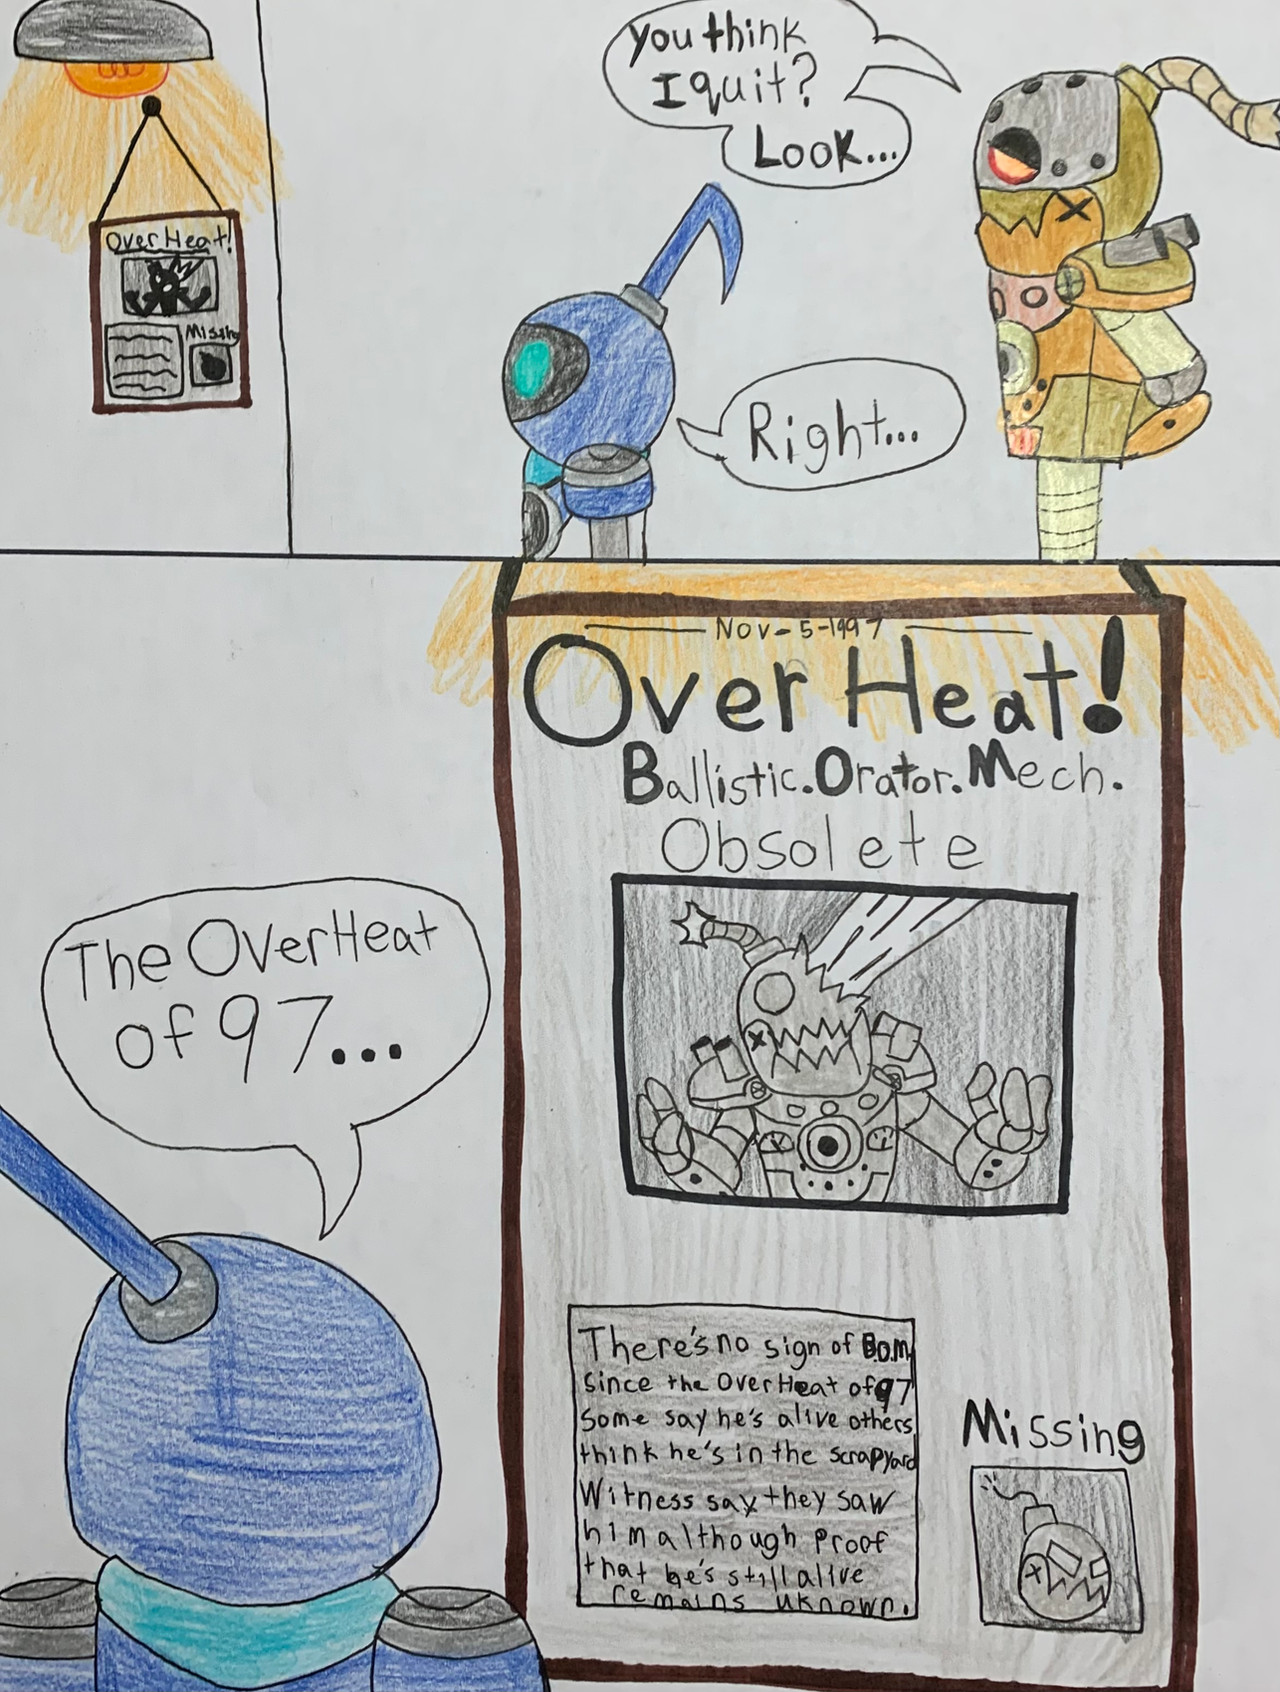 Over Heat!
Missing
You think
I quit?
Look...
Right...
The OverHeat
of 97...
Nov-5-1997
Over Heat!
Ballistic.Orator.Mech.
Obsolete
There's no sign of B.O.M
since the OverHeat of 97
Some say he's alive others
think he's in the scrapyard
Witness say they saw
him although proof
that he's still alive
remains uknown.
Missing